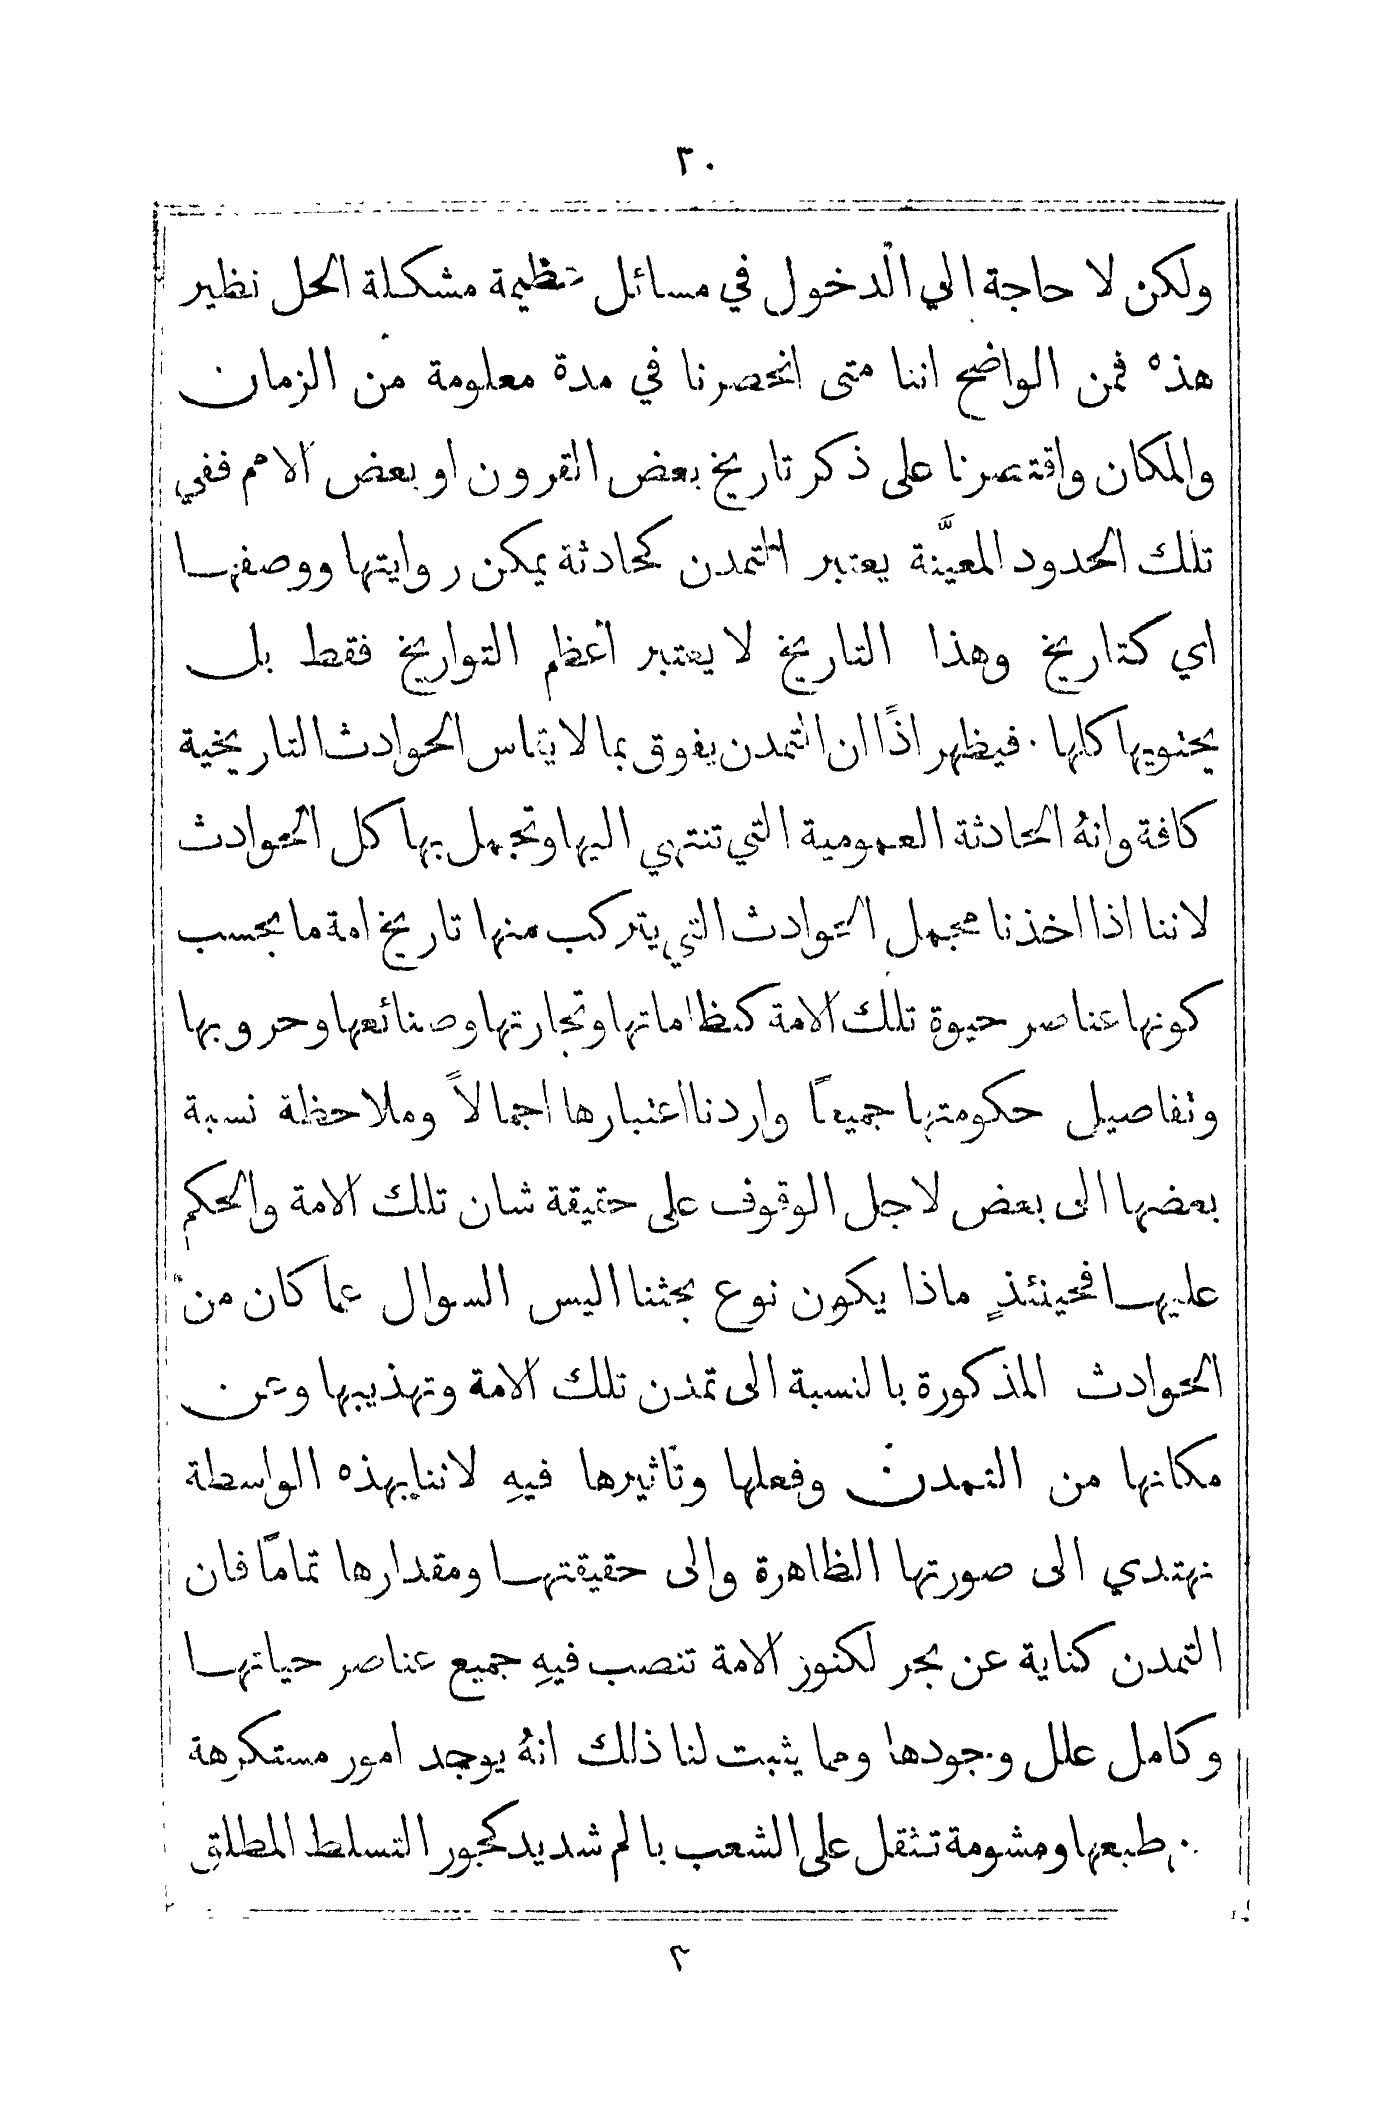 ٣٠
ولكن لا حاجة الى الدخول في مسائل عظيمة مشكلة الحل نظير
هذه فمن الواضح اننا متى انحصرنا في مدة معلومة من الزمان
والمكان واقتصرنا على ذكر تاريخ بعض القرون او بعض الامم ففي
تلك الحدود المعيَّنة يعتبر التمدن كحادثة يمكن روايتها ووصفها
اي كتاريخ وهذا التاريخ لا يعتبر اعظم التواريخ فقط بل
يحتويها كلها · فيظهر اذًا ان التمدن يفوق بما لا يقاس الحوادث التاريخية
كافة وانهُ الحادثة العمومية التي تنتهي اليها وتجمل بها كل الحوادث
لاننا اذا اخذنا مجمل الحوادث التي يتركب منها تاريخ امة ما بحسب
كونها عناصر حيوة تلك الامة كنظاماتها وتجارتها وصنائعها وحروبها
وتفاصيل حكومتها جميعًا واردنا اعتبارها اجمالاً وملاحظة نسبة
بعضها الى بعض لاجل الوقوف على حقيقة شان تلك الامة والحكم
عليها فحينئذٍ ماذا يكون نوع بحثنا اليس السوال عما كان من
الحوادث المذكورة بالنسبة الى تمدن تلك الامة وتهذيبها وعن
مكانها من التمدن وفعلها وتاثيرها فيهِ لاننا بهذه الواسطة
نهتدي الى صورتها الظاهرة والى حقيقتها ومقدارها تمامًا فان
التمدن كناية عن بحر لكنوز الامة تنصب فيهِ جميع عناصر حياتها
وكامل علل وجودها ومما يثبت لنا ذلك انهُ يوجد امور مستكرهة
طبعها ومشومة تثقل على الشعب بالم شديد كجور التسلط المطلق
٣